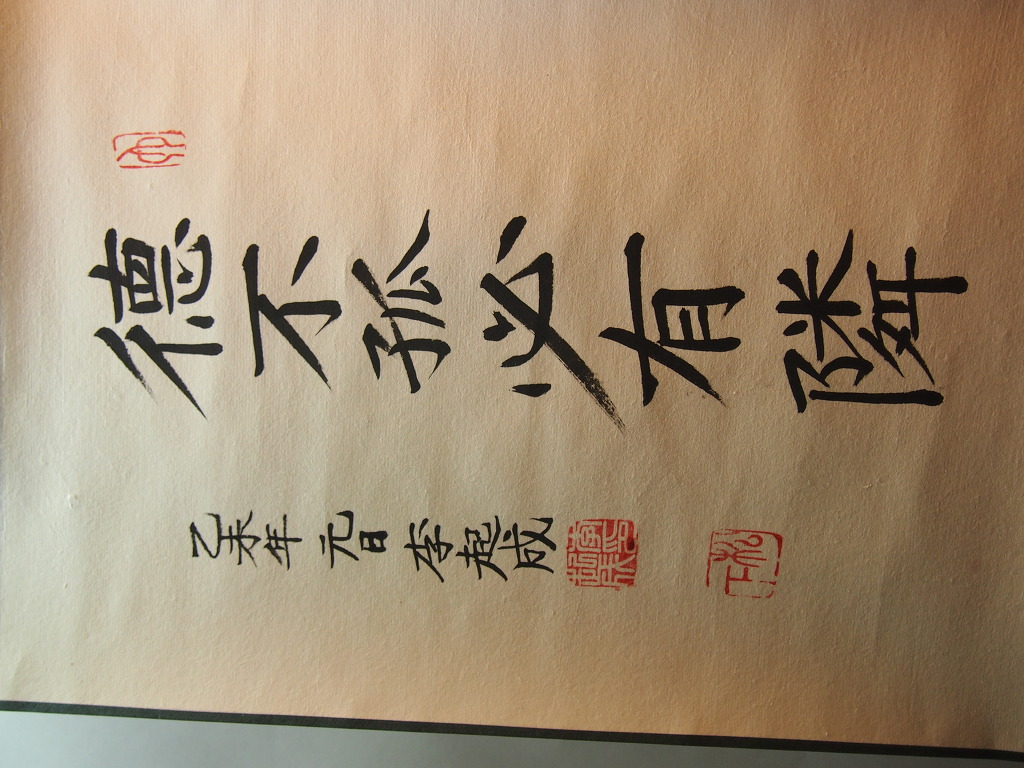 德不孤必有隣
乙未年 元日 李起成